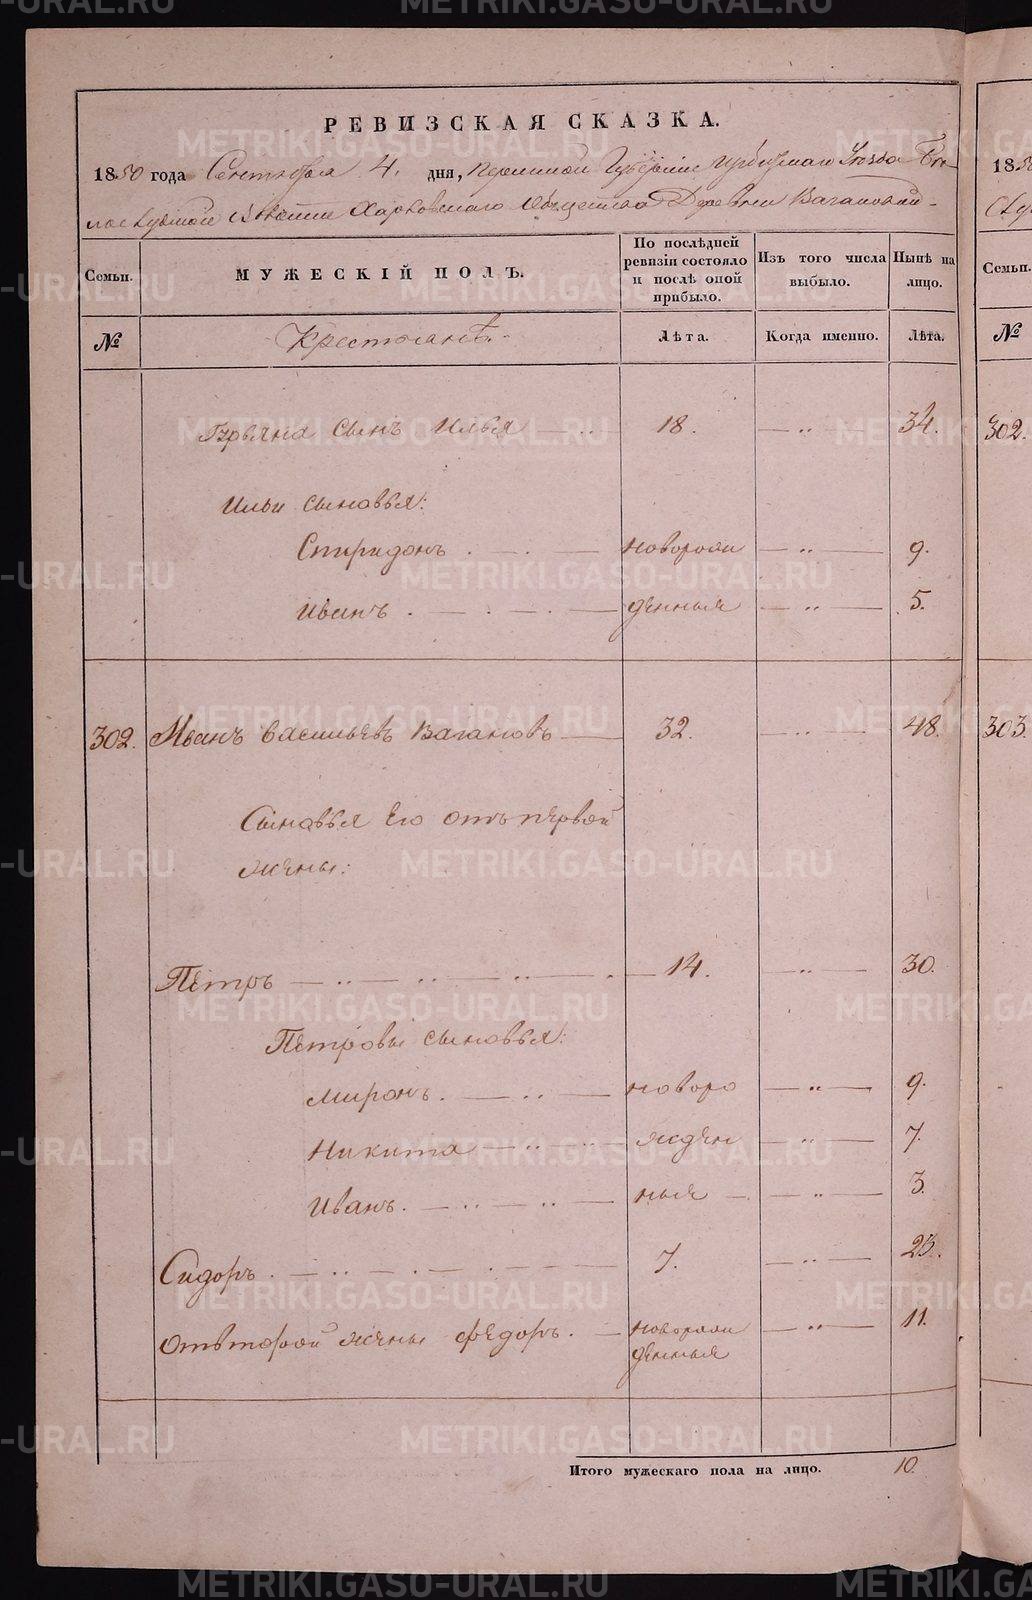 METRIKI.GASO-URAL.RU
РЕВИЗСКАЯ СКАЗКА.
1850 года Сентября 4. дня, Пермской Губернiи Ирбитскаго Уѣзда
Волости Харловскаго Общества Деревни Вагановой
Семьи.
МУЖЕСКІЙ ПОЛЪ.
По послѣдней ревизіи состояло и послѣ оной прибыло.
Изъ того числа выбыло.
Нынѣ на лицо.
№
Крестьянъ
Лѣта.
Когда именно.
Лѣта.
сынъ Илья 18. — „ — 34.
Ильи сыновья:
Спиридонъ новорож — „ — 9.
Иванъ денныя — „ — 5.
302. Иванъ Васильевъ Вагановъ 32. — „ — 48.
Сыновья Его отъ первой
жены:
Петръ 14. — „ — 30.
Петровы сыновья:
Миронъ. новоро — „ — 9.
Никита жден — „ — 7.
Иванъ. ныя — „ — 3.
Сидоръ. 7. — „ — 23.
Отъ второй жены Федоръ. новорож — „ — 11.
денныя
Итого мужескаго пола на лицо. 10.
185
Семьи.
№
302.
303.